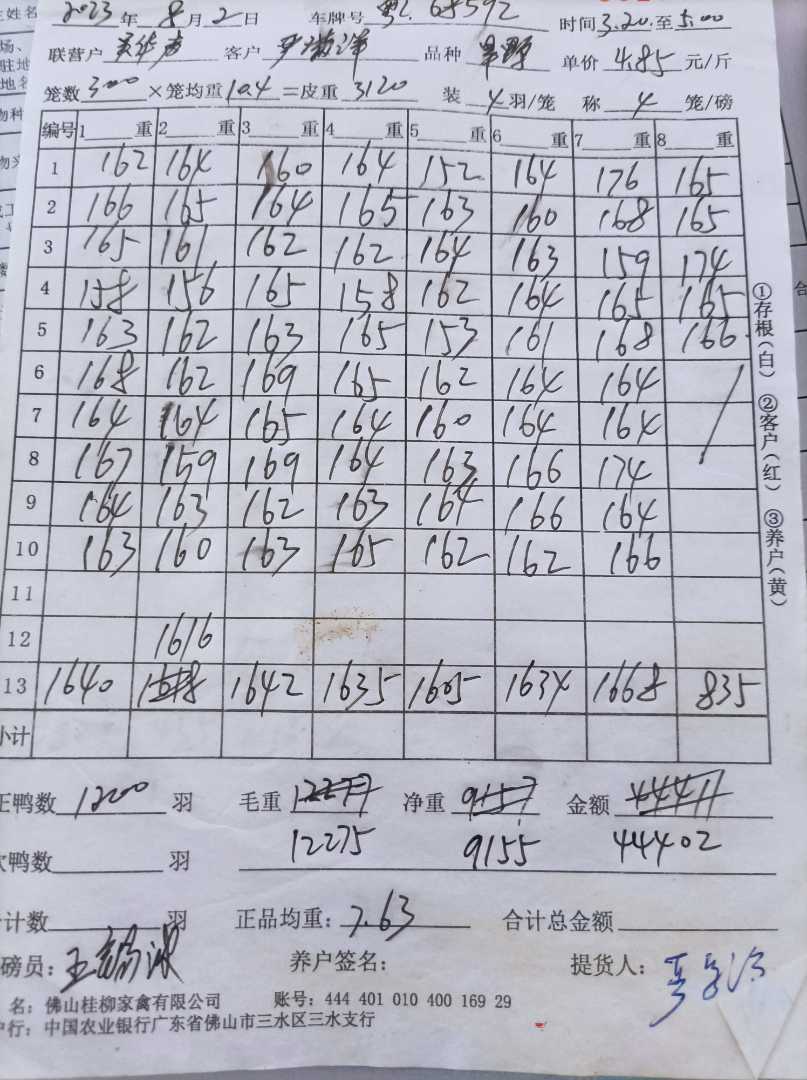 主姓名
2023年8月2日 车牌号 粤 68592 时间3.20.至5.00
联营户 客户 品种 单价 4.85 元/斤
笼数 300 ×笼均重 10.4 =皮重 3120 装 4 羽/笼 称 4 笼/磅
编号 1 重 2 重 3 重 4 重 5 重 6 重 7 重 8 重
1 162 164 160 164 152 164 176 165
2 166 165 164 165 163 160 168 165
3 165 161 162 162 164 163 159 174
4 158 156 165 158 162 164 165 165
5 163 162 163 165 153 161 168 166
6 168 162 169 165 162 164 164
7 164 164 165 164 160 164 164
8 167 159 169 164 163 166 174
9 164 163 162 163 164 166 164
10 163 160 163 165 162 162 166
11
12 1616
13 1640 1642 1635 1605 1634 1668 835
小计
正鸭数 1200 羽 毛重 12277 净重 9157 金额 44411
次鸭数 羽 12275 9155 44402
合计数 羽 正品均重: 7.63 合计总金额
磅员: 王 养户签名: 提货人:
名: 佛山桂柳家禽有限公司 账号: 444 401 010 400 169 29
户行: 中国农业银行广东省佛山市三水区三水支行
①存根(白) ②客户(红) ③养户(黄)